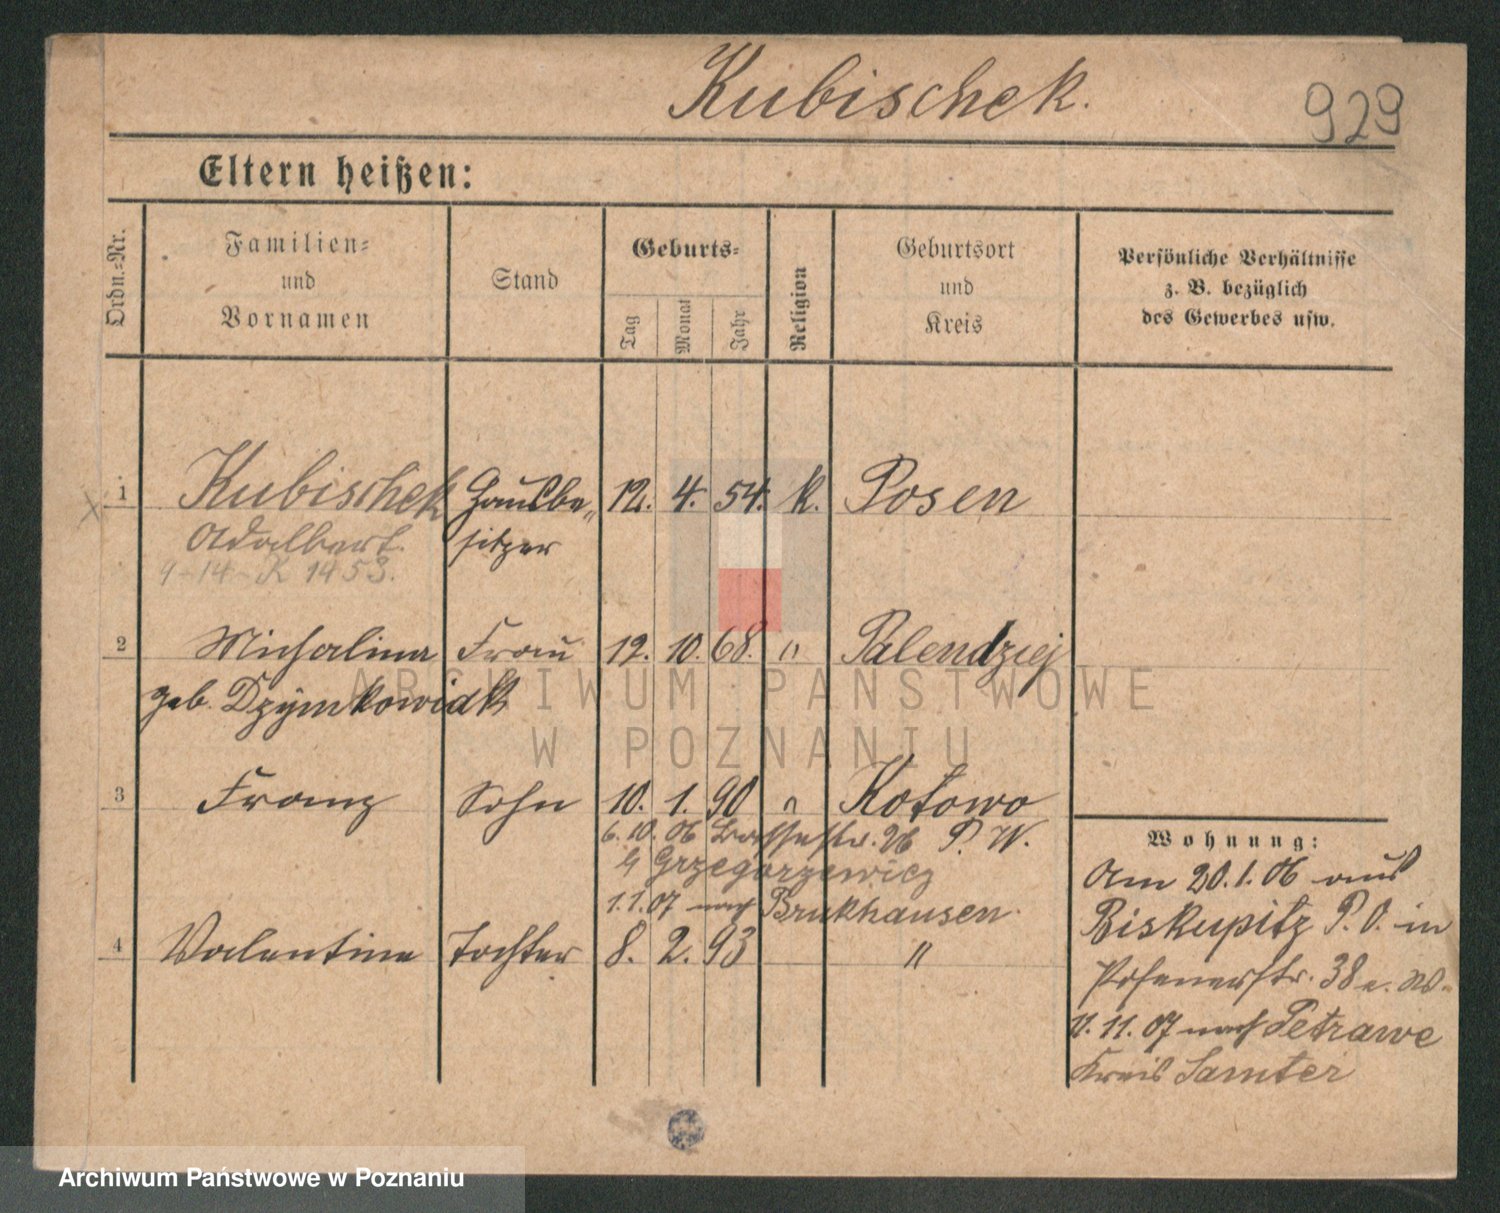 Kubischek.
929
Eltern heißen:
Ordn.=Nr.
Familien= und Vornamen
Stand
Geburts=
Tag
Monat
Jahr
Religion
Geburtsort und Kreis
Persönliche Verhältnisse
z. B. bezüglich
des Gewerbes usw.
1 Kubischek Hausbe„ 12. 4. 54. k. Posen
Adalbert. sitzer
9-14-K 1453.
2 Michalina Frau 12. 10. 68. " Palendziej
geb. Dzymkowiak
3 Franz Sohn 10. 1. 90 " Kotowo
6.10.06 26 P. W.
Grzegorzewicz
1.1.07 nach Brukhausen
4 Valentine Tochter 8. 2. 93 "
Wohnung:
Am 20.1.06 aus
Biskupitz P. O. in
Posenerstr. 38
11.11.07 nach Petrawe
Kreis Samter
ARCHIWUM PAŃSTWOWE
W POZNANIU
Archiwum Państwowe w Poznaniu